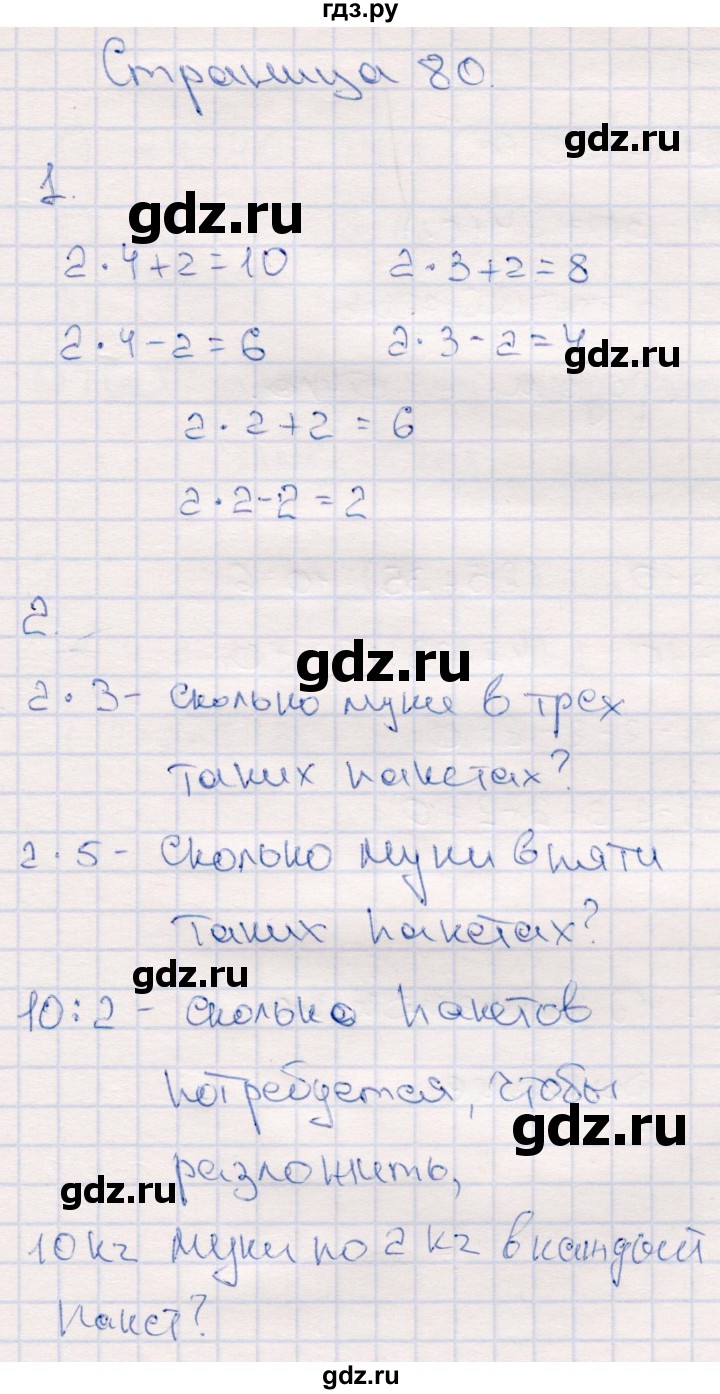 гдз.ру
Страница 80.
gdz.ru
1.
gdz.ru
2·4+2=10 2·3+2=8
2·4-2=6 2·3-2=4
gdz.ru
2·2+2=6
2·2-2=2
2.
gdz.ru
2·3- сколько муки в трех
таких пакетах?
2·5- Сколько муки в пяти
таких пакетах?
gdz.ru
10:2- сколько пакетов
потребуется, чтобы
gdz.ru
разложить,
gdz.ru
10 кг муки по 2 кг в каждый
пакет?
gdz.ru